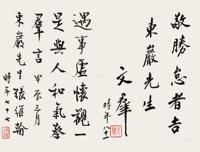 敬勝怠者吉
東巖先生
文羣
遇事虛懷觀一
是與人和氣察
羣言 甲辰三月
東巖先生 張維翰
時年七十七